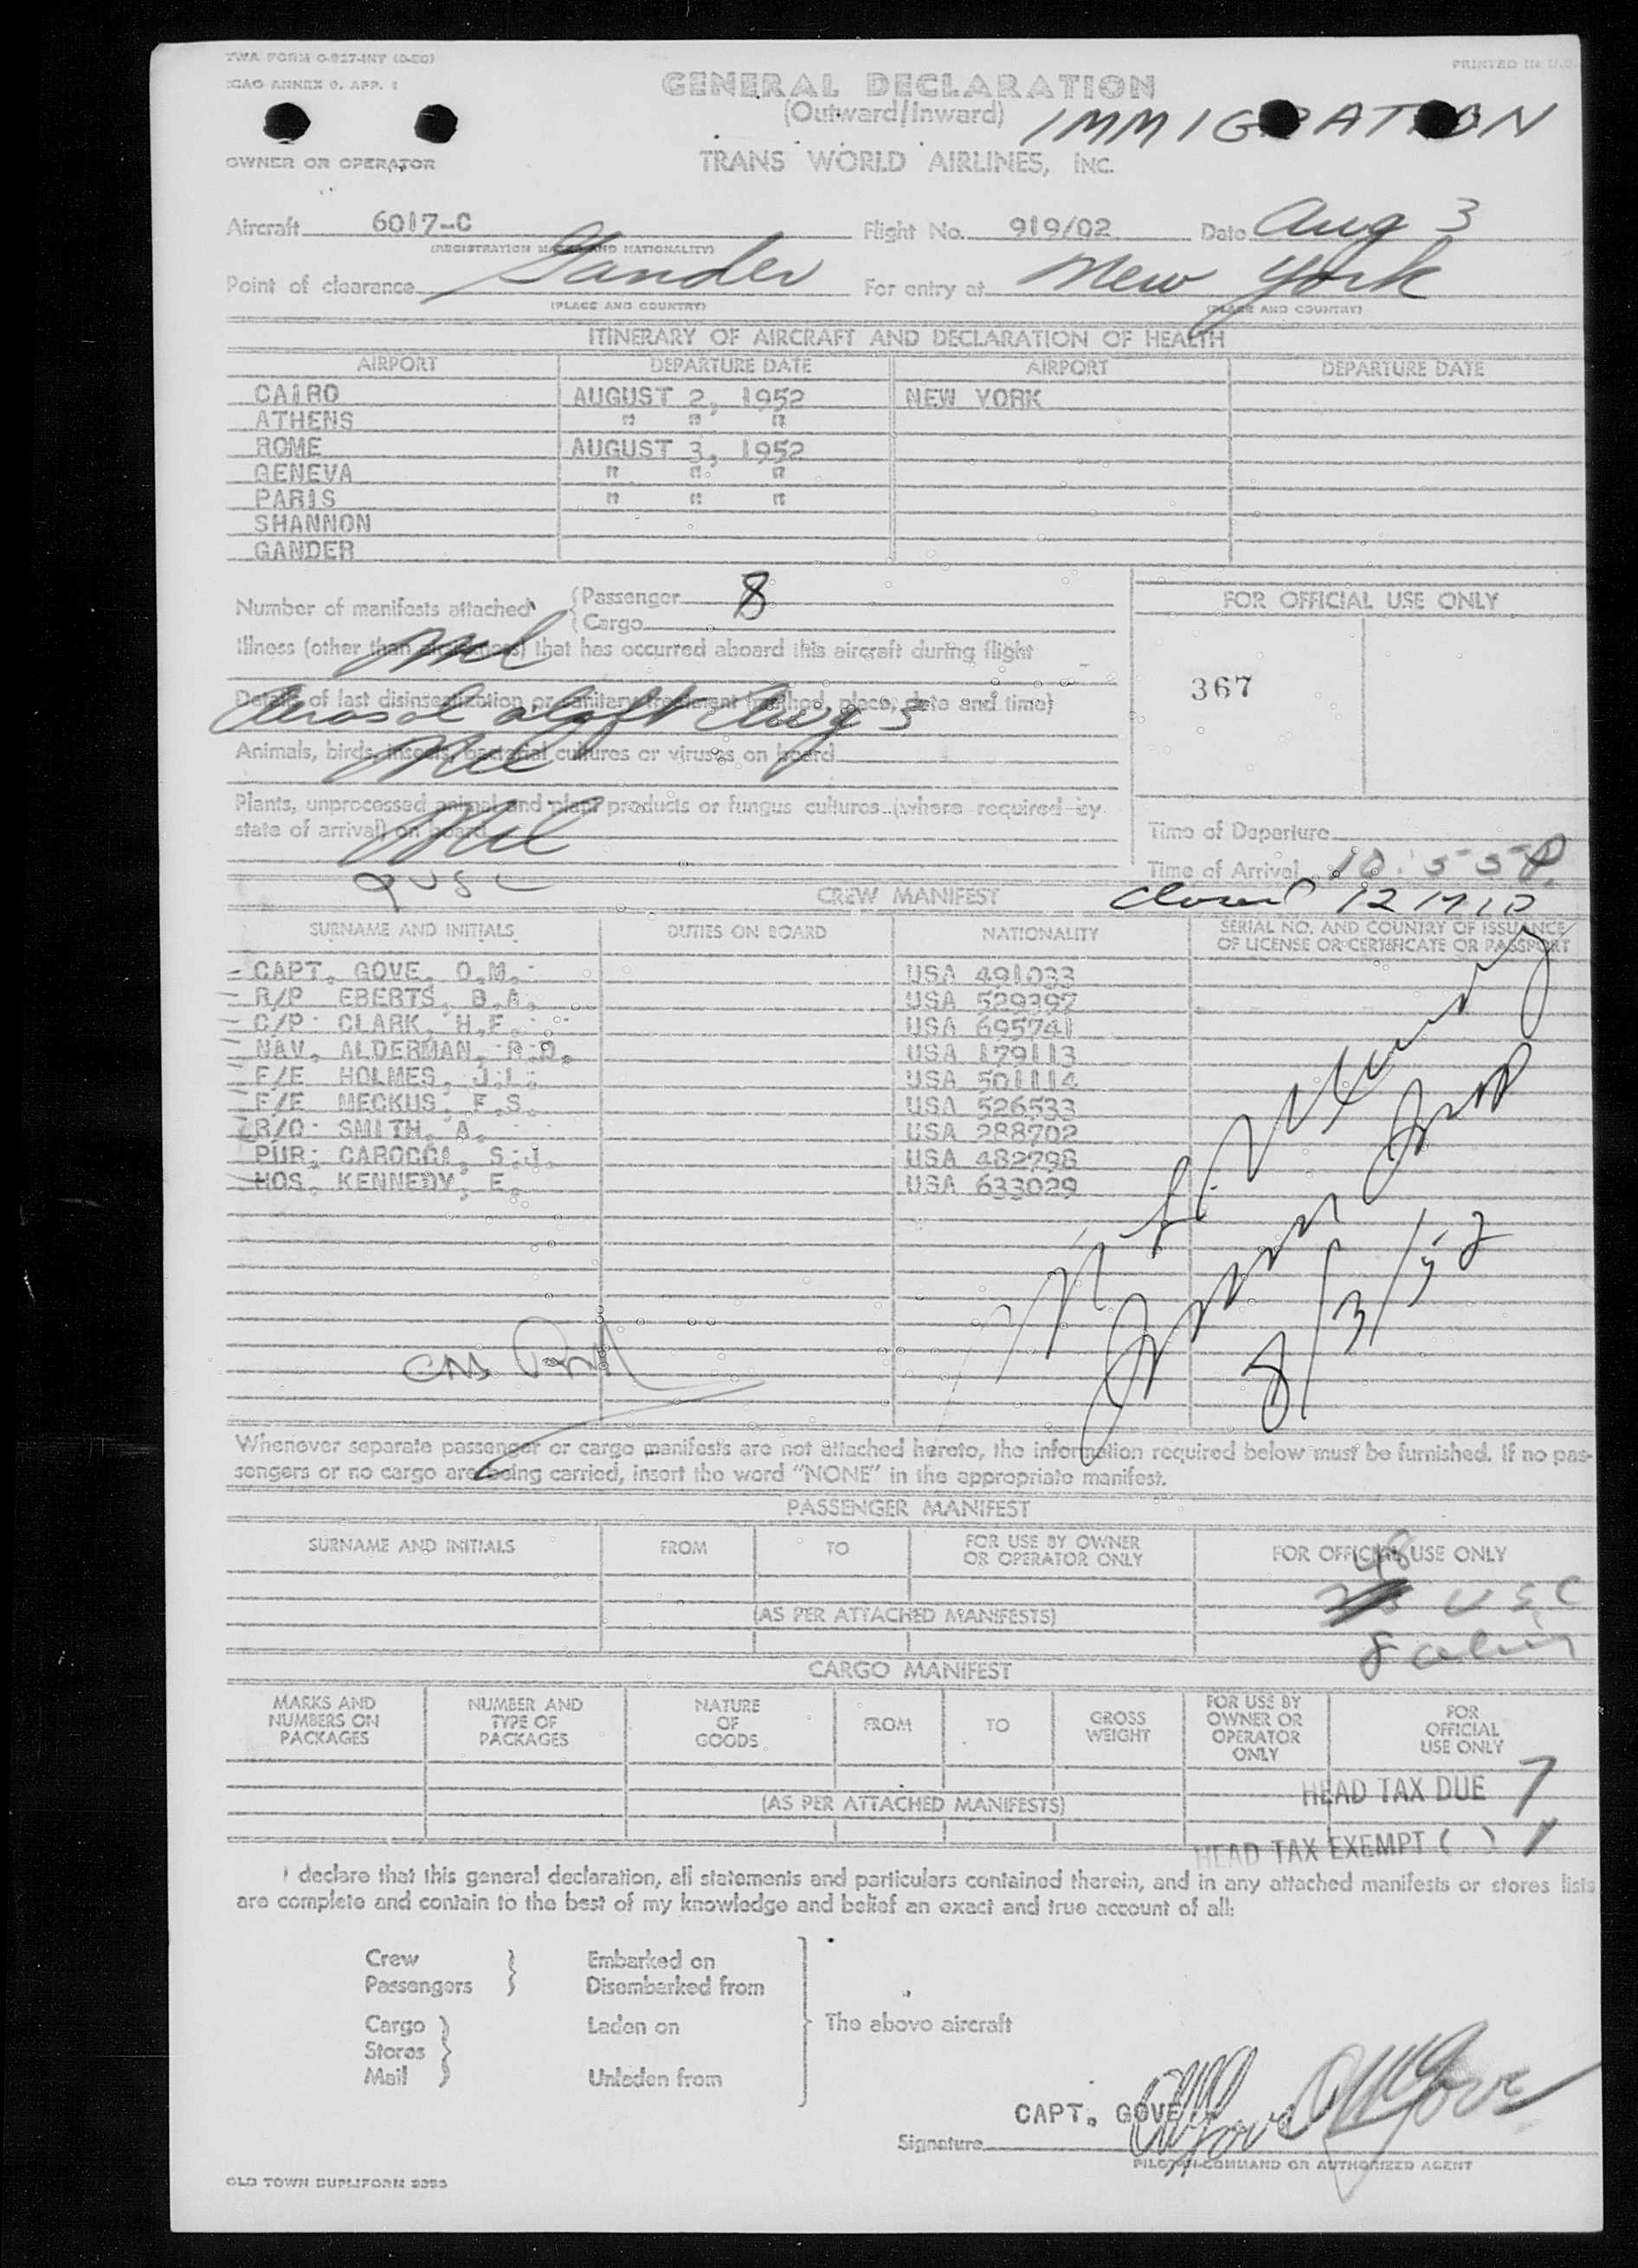 TWA FORM O-927-INT (0-50)
ICAO ANNEX 9, APP. 1
PRINTED IN U.S.
GENERAL DECLARATION
(Outward/Inward)
IMMIGRATION
OWNER OR OPERATOR
TRANS WORLD AIRLINES, INC.
Aircraft 6017-C Flight No. 919/02 Date Aug 3
(REGISTRATION MARKS AND NATIONALITY)
Point of clearance Gander For entry at New York
(PLACE AND COUNTRY) (PLACE AND COUNTRY)
ITINERARY OF AIRCRAFT AND DECLARATION OF HEALTH
AIRPORT DEPARTURE DATE AIRPORT DEPARTURE DATE
CAIRO AUGUST 2, 1952 NEW YORK
ATHENS " " "
ROME AUGUST 3, 1952
GENEVA " " "
PARIS " " "
SHANNON
GANDER
Number of manifests attached { Passenger 8
{ Cargo
FOR OFFICIAL USE ONLY
Illness (other than airsickness) that has occurred aboard this aircraft during flight
nil
367
Details of last disinsectization or sanitary treatment (method, place, date and time)
Aerosol aloft Aug 3
Animals, birds, insects, bacterial cultures or viruses on board
Nil
Plants, unprocessed animal and plant products or fungus cultures (where required by
state of arrival) on board
Nil
Time of Departure
Time of Arrival 10:55P.
9 USC
CREW MANIFEST
SURNAME AND INITIALS DUTIES ON BOARD NATIONALITY SERIAL NO. AND COUNTRY OF ISSUANCE
OF LICENSE OR CERTIFICATE OR PASSPORT
CAPT. GOVE, O.M. USA 491033
R/P EBERTS, B.A. USA 529397
C/P CLARK, H.F. USA 695741
NAV. ALDERMAN, R.D. USA 179113
F/E HOLMES, J.L. USA 501114
F/E MECKUS, F.S. USA 526533
R/O SMITH, A. USA 288702
PUR. CAROCCI, S.J. USA 482798
HOS. KENNEDY, E. USA 633029
8/3/52
Whenever separate passenger or cargo manifests are not attached hereto, the information required below must be furnished. If no pas-
sengers or no cargo are being carried, insert the word "NONE" in the appropriate manifest.
PASSENGER MANIFEST
SURNAME AND INITIALS FROM TO FOR USE BY OWNER
OR OPERATOR ONLY FOR OFFICIAL USE ONLY
48
USC
(AS PER ATTACHED MANIFESTS)
8 alien
CARGO MANIFEST
MARKS AND
NUMBERS ON
PACKAGES
NUMBER AND
TYPE OF
PACKAGES
NATURE
OF
GOODS
FROM
TO
GROSS
WEIGHT
FOR USE BY
OWNER OR
OPERATOR
ONLY
FOR
OFFICIAL
USE ONLY
HEAD TAX DUE 7
(AS PER ATTACHED MANIFESTS)
HEAD TAX EXEMPT ( ) 1
I declare that this general declaration, all statements and particulars contained therein, and in any attached manifests or stores lists
are complete and contain to the best of my knowledge and belief an exact and true account of all:
Crew Embarked on
Passengers Disembarked from
Cargo Laden on The above aircraft
Stores
Mail Unladen from
CAPT. GOVE
OMGove OMGove
Signature
PILOT-IN-COMMAND OR AUTHORIZED AGENT
OLD TOWN DUPLIFORM